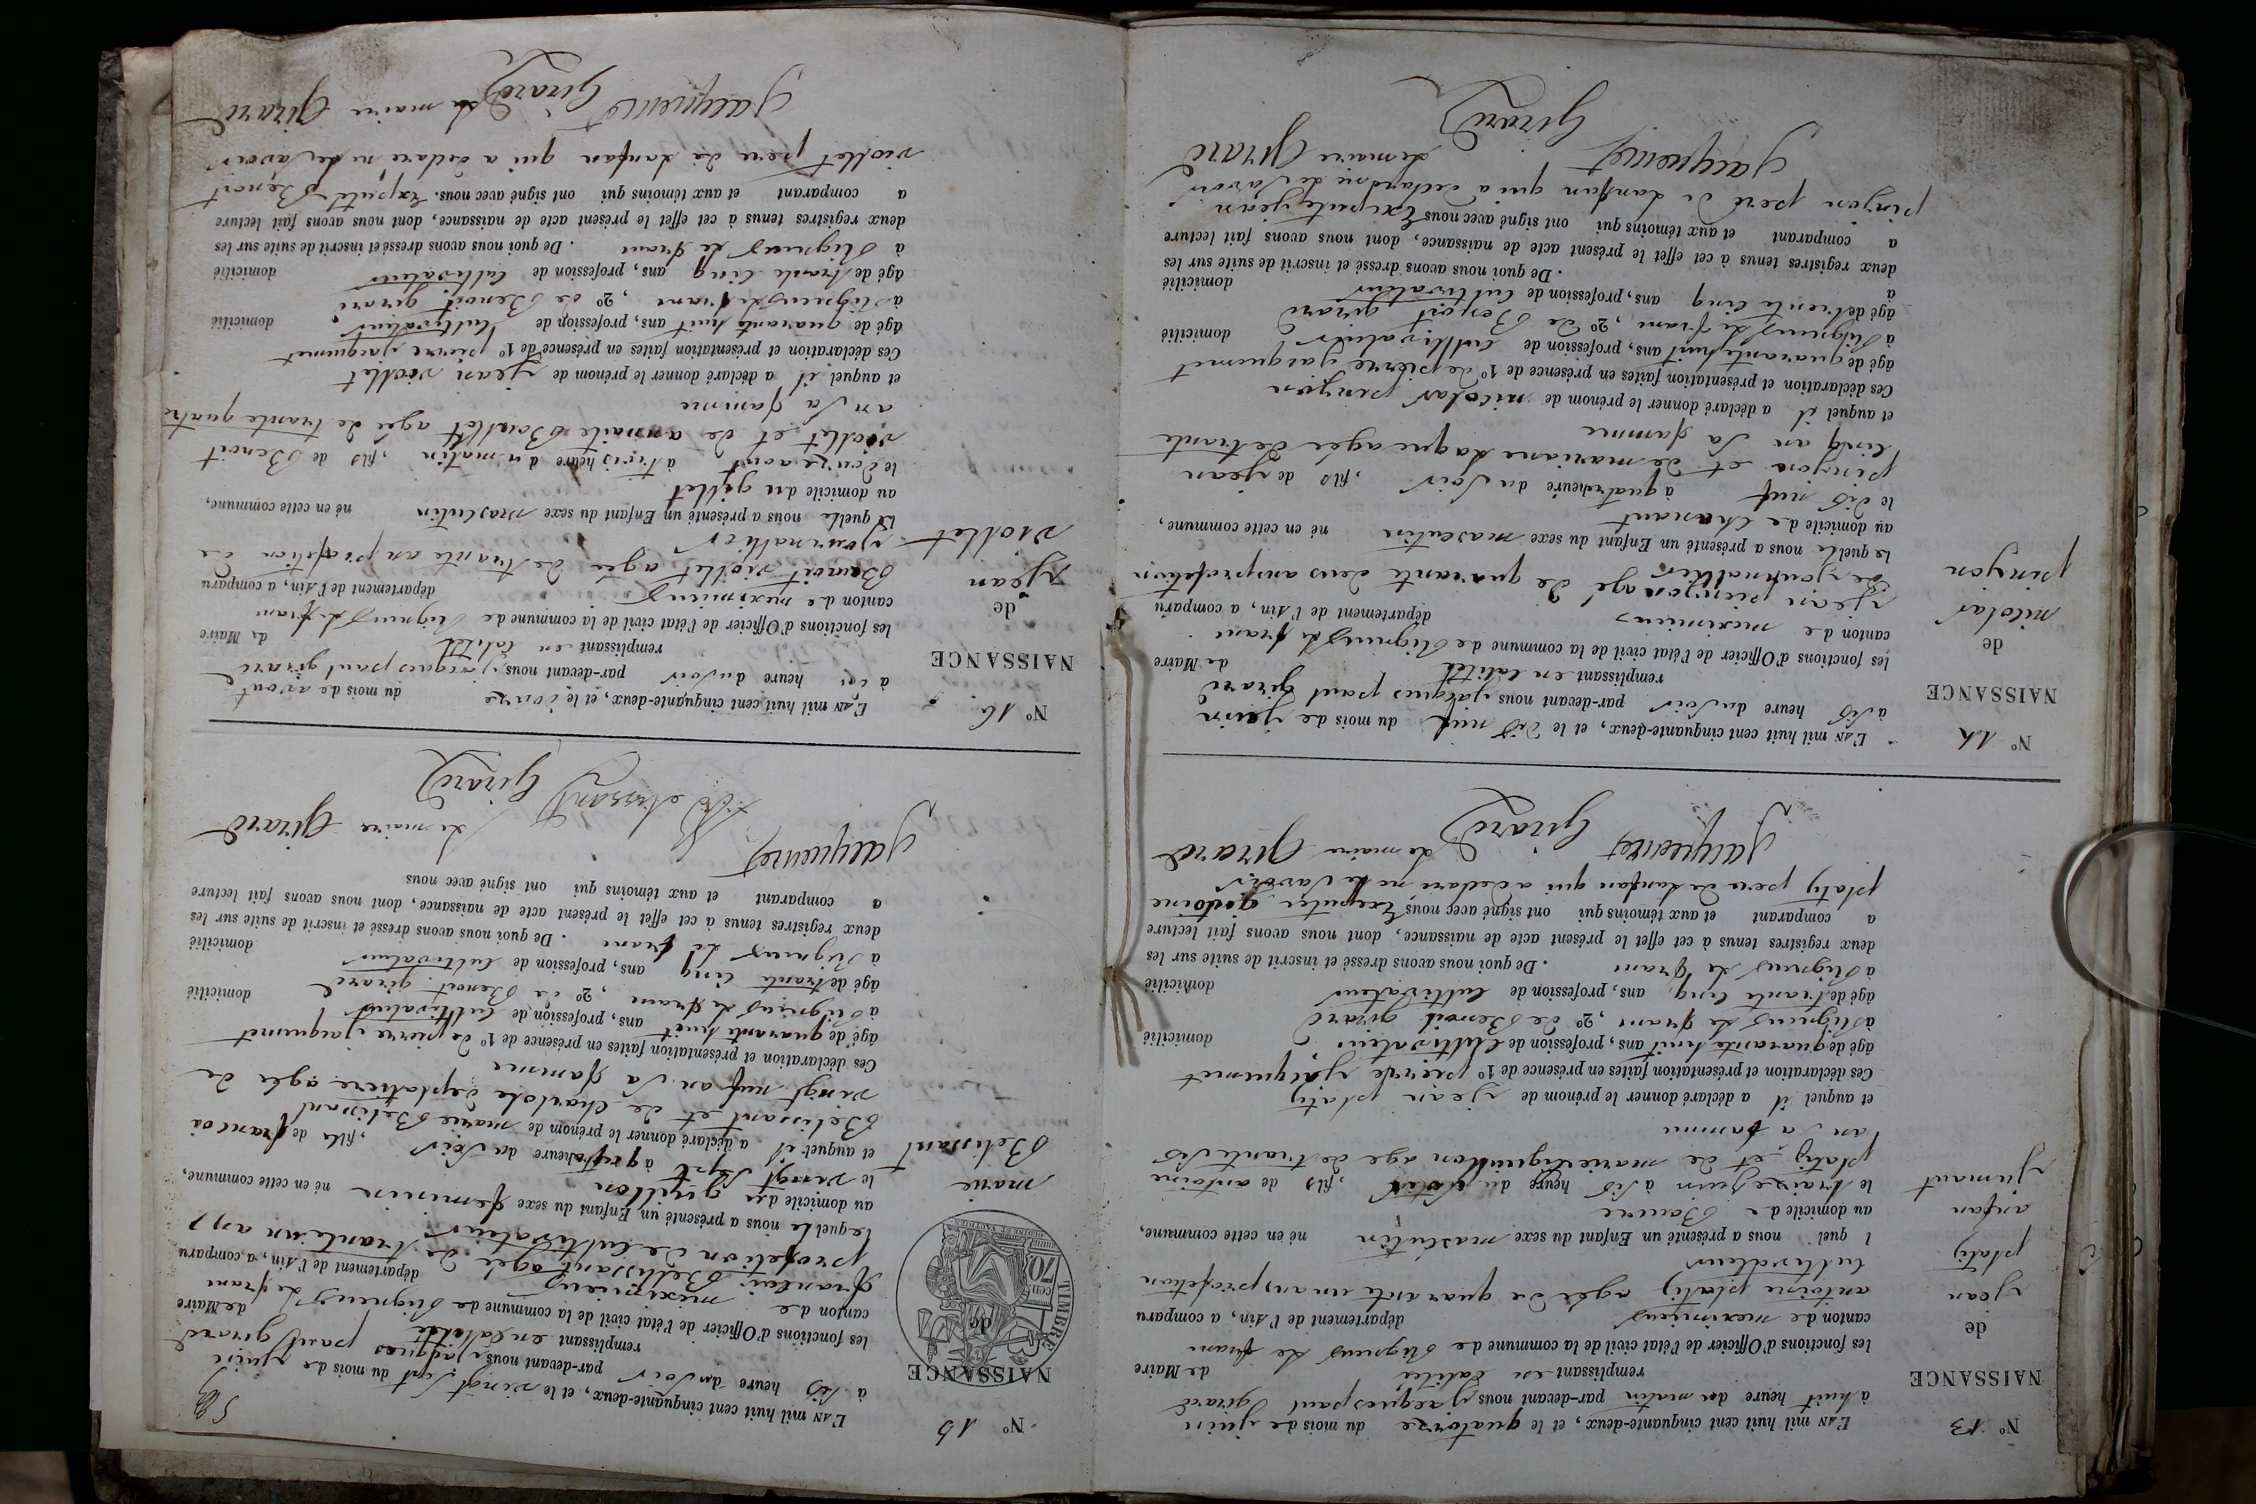 N° 13
NAISSANCE
de
jean
platij
anfan
jumant
L'AN mil huit cent cinquante-deux, et le quatorze du mois de juin
à huit heure du matin par-devant nous jacques paul girard
remplissant en calitée de Maire
les fonctions d'Officier de l'état civil de la commune de Rigneus le franc
canton de meximieus département de l'Ain, a comparu
antoine platij agée de quarante un ans profetion
cultivateur
l quel nous a présenté un Enfant du sexe masculin né en cette commune,
au domicile de
le traize juin à sis heure du , fils de antoine
platij et de marie age de trante sis
an sa famme
et auquel il a déclaré donner le prénom de jean platij
Ces déclaration et présentation faites en présence de 1° pierre jacquemet
âgé de quarante huit ans, profession de cultivateur domicilié
à Rigneus le franc, 2° de Benoit girard
âgé de trante cinq ans, profession de cultivateur domicilié
à Rigneus le franc . De quoi nous avons dressé et inscrit de suite sur les
deux registres tenus à cet effet le présent acte de naissance, dont nous avons fait lecture
a comparant et aux témoins qui ont signé avec nous Excepter antoine
platij pere de lanfan qui a declare ne le savoir
Jacquemet le maire Girard
Girard
N° 14
NAISSANCE
de
nicolas
pinjon
L'AN mil huit cent cinquante-deux, et le dis neuf du mois de juin
à sis heure du soir par-devant nous jacques paul girard
remplissant en calitée de Maire
les fonctions d'Officier de l'état civil de la commune de Rigneus le franc
canton de meximieus département de l'Ain, a comparu
jean pinjon agé de quarante deus ans profetion
de journallier
le quel nous a présenté un Enfant du sexe masculin né en cette commune,
au domicile de chanant
le dis neuf à quatre heure du soir, fils de jean
pinjon et de mariane agée de trante
cinq an sa famme
et auquel il a déclaré donner le prénom de nicolas pinjon
Ces déclaration et présentation faites en présence de 1° de pierre jacquemet
âgé de quarante huit ans, profession de cultivateur domicilié
à Rigneus le franc, 2° de Benoit girard
âgé de trente cinq ans, profession de cultivateur domicilié
a . De quoi nous avons dressé et inscrit de suite sur les
deux registres tenus à cet effet le présent acte de naissance, dont nous avons fait lecture
a comparant et aux témoins qui ont signé avec nous Excepte jean
pinjon pere de lanfan qui a declare ne le savoir
Jacquemet le maire Girard
Girard
N° 15
NAISSANCE
de
TIMBRE
70 CENT
marie
Belissant
L'AN mil huit cent cinquante-deux, et le vingt sept du mois de juin
à sis heure du soir par-devant nous jacques paul girard
remplissant en calitée de Maire
les fonctions d'Officier de l'état civil de la commune de Rigneus le franc
canton de meximieus département de l'Ain, a comparu
francois Belissant agée de trante un ans
profetion de cultivateur
le quel nous a présenté un Enfant du sexe feminin né en cette commune,
au domicile du grillon
le vingt sept à heure du soir, fille de francois
et auquel il a déclaré donner le prénom de marie Belissant
Belissant et de Charlote agée de
vingt neuf an sa famme
Ces déclaration et présentation faites en présence de 1° de pierre jacquemet
âgé de quarante huit ans, profession de cultivateur domicilié
à Rigneus le franc, 2° de Benoit girard
âgé de trante cinq ans, profession de cultivateur domicilié
à Rigneus le franc . De quoi nous avons dressé et inscrit de suite sur les
deux registres tenus à cet effet le présent acte de naissance, dont nous avons fait lecture
a comparant et aux témoins qui ont signé avec nous
Jacquemet le maire Girard
Girard
N° 16
NAISSANCE
de
jean
viollet
L'AN mil huit cent cinquante-deux, et le douze du mois de aout
à heure du soir par-devant nous jacques paul girard
remplissant en calitée de Maire
les fonctions d'Officier de l'état civil de la commune de Rigneus le franc
canton de meximieus département de l'Ain, a comparu
Benoit viollet agée de trante an profetion de
journallier
le quelle nous a présenté un Enfant du sexe masculin né en cette commune,
au domicile du gillet
le douze aout à trois heure du matin, fils de Benoit
viollet et de agée de trante quatre
an sa famme
et auquel il a déclaré donner le prénom de jean viollet
Ces déclaration et présentation faites en présence de 1° pierre jacquemet
âgé de quarante huit ans, profession de cultivateur domicilié
à Rigneus le franc, 2° de Benoit girard
âgé de trante cinq ans, profession de cultivateur domicilié
à Rigneus le franc . De quoi nous avons dressé et inscrit de suite sur les
deux registres tenus à cet effet le présent acte de naissance, dont nous avons fait lecture
a comparant et aux témoins qui ont signé avec nous. Exepté Benoit
viollet pere de lanfan qui a declare ne le savoir
Jacquemet le maire Girard
Girard